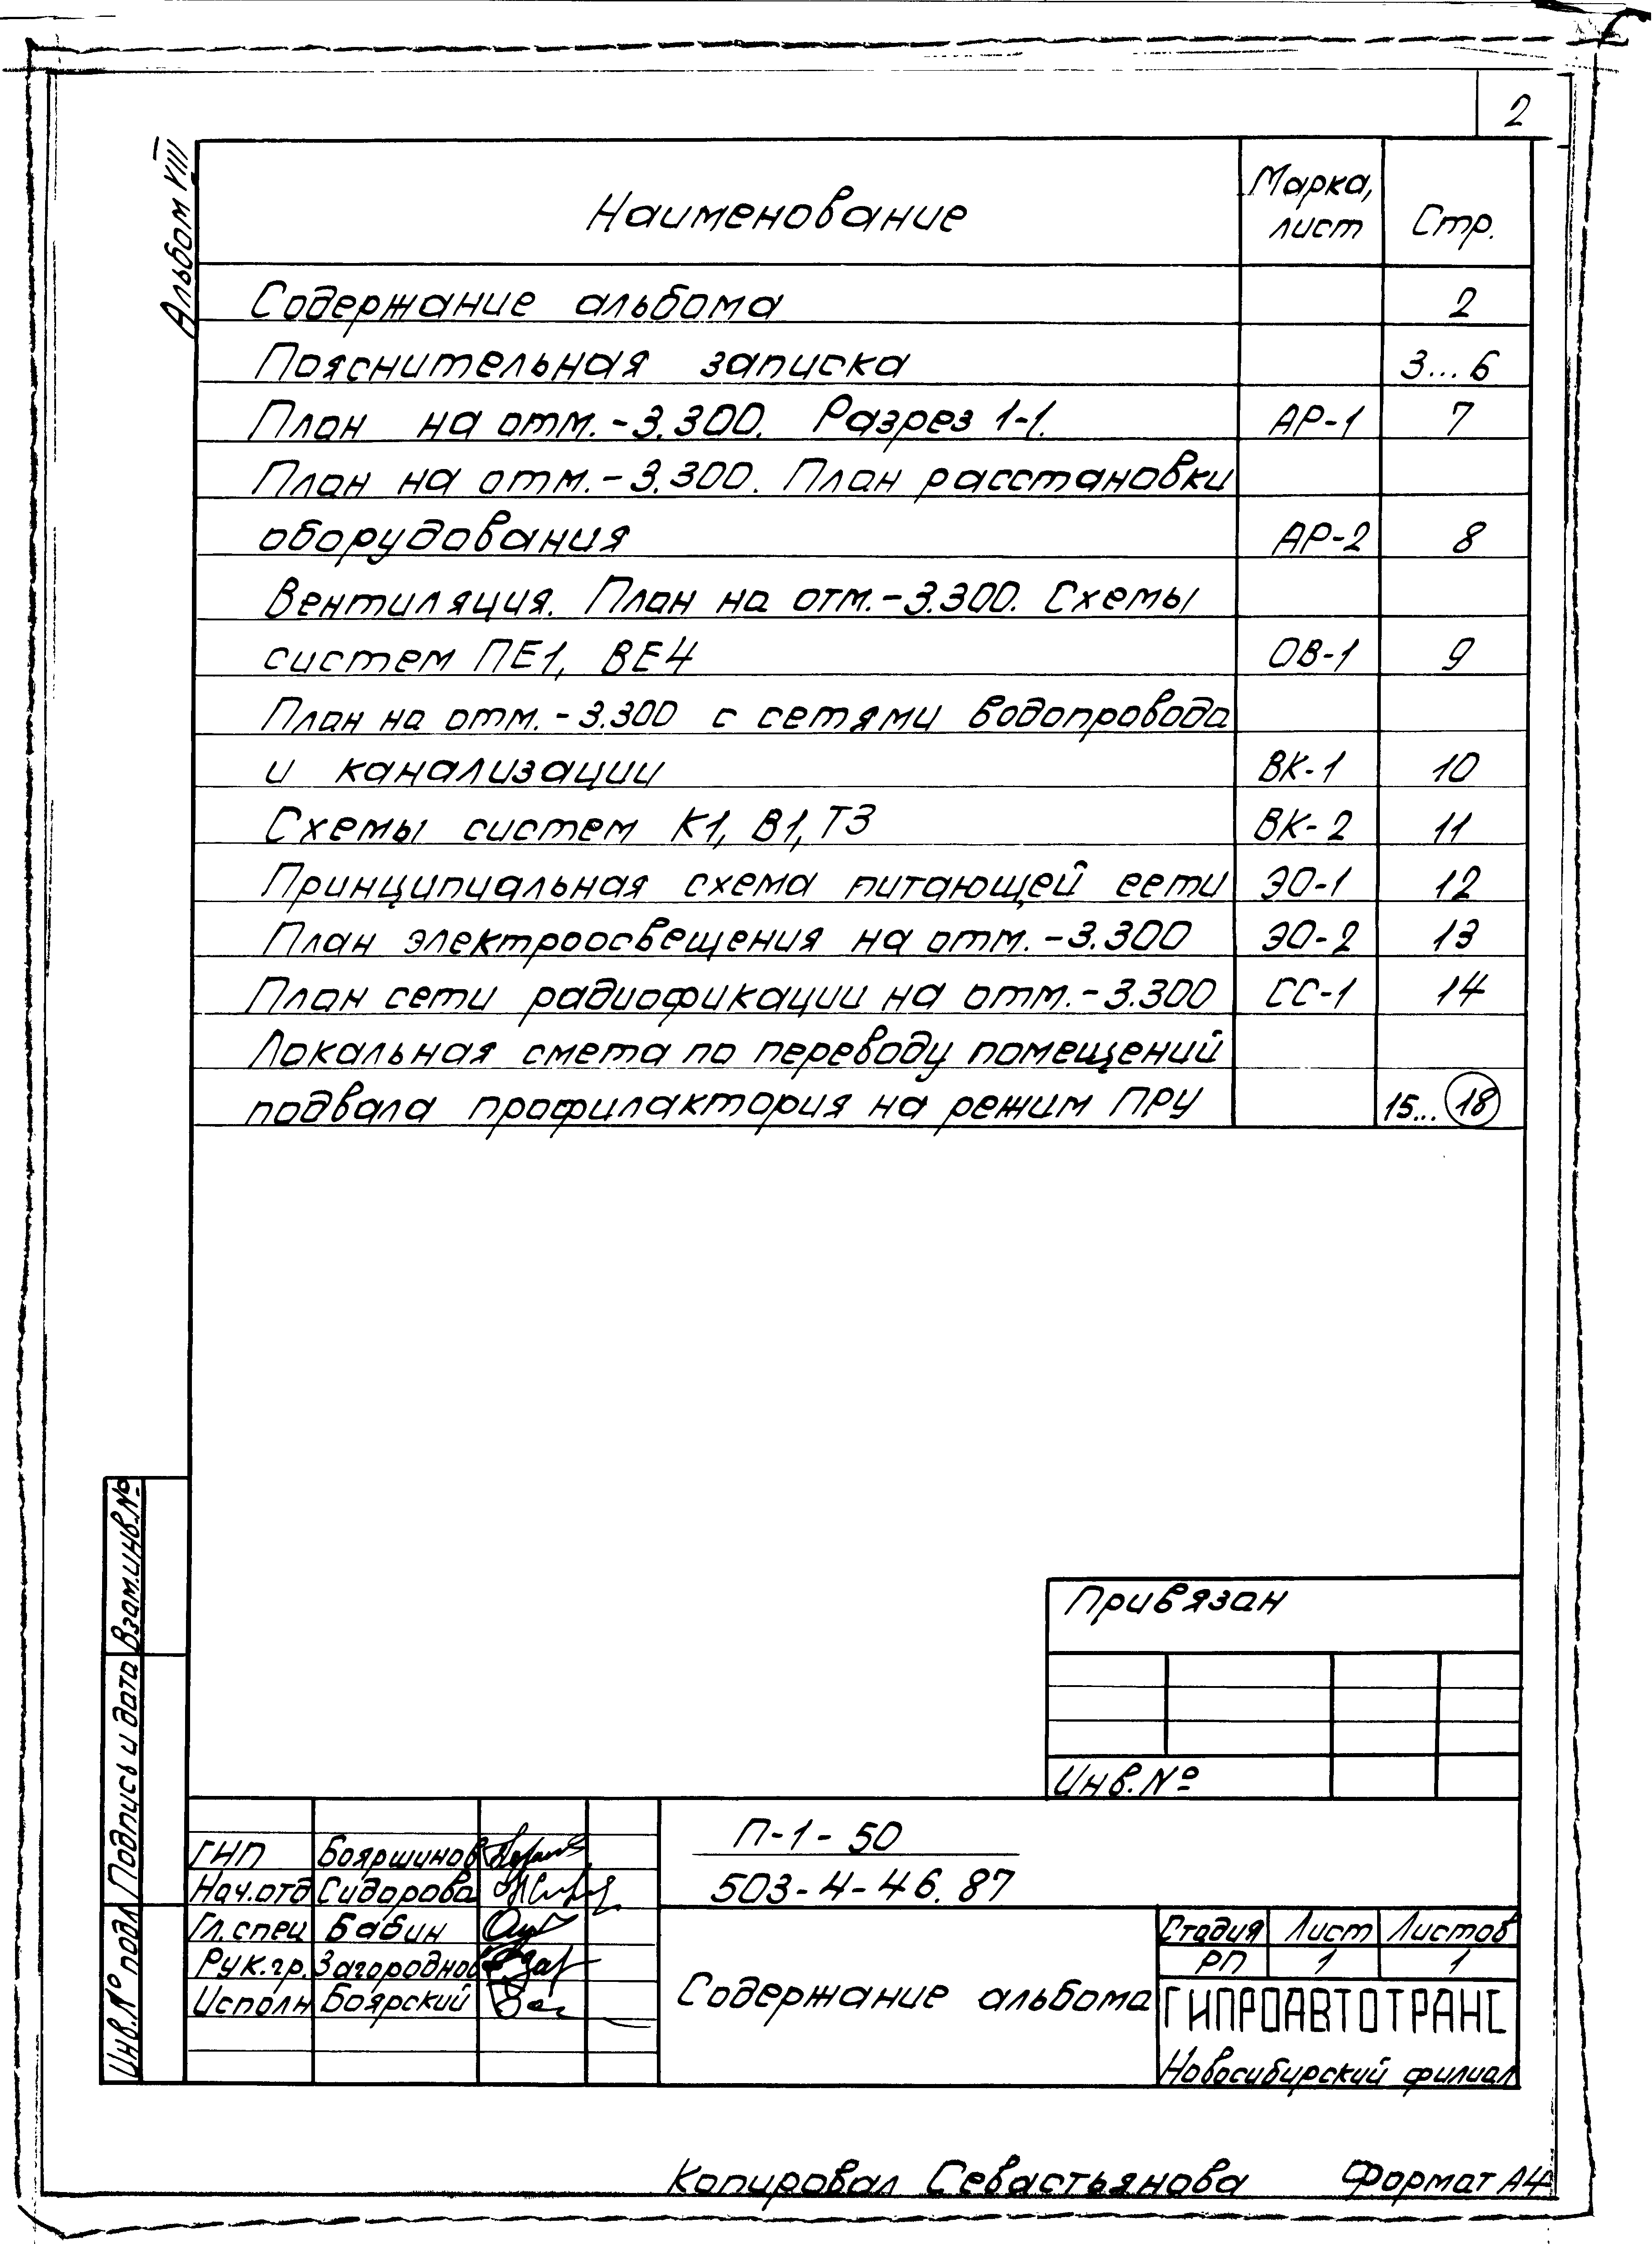 2
Альбом VIII
Наименование Марка, лист Стр.
Содержание альбома 2
Пояснительная записка 3...6
План на отм.-3.300. Разрез 1-1. АР-1 7
План на отм.-3.300. План расстановки
оборудования АР-2 8
Вентиляция. План на отм.-3.300. Схемы
систем ПЕ1, ВЕ4 ОВ-1 9
План на отм.-3.300 с сетями водопровода
и канализации ВК-1 10
Схемы систем К1, В1, Т3 ВК-2 11
Принципиальная схема питающей сети ЭО-1 12
План электроосвещения на отм.-3.300 ЭО-2 13
План сети радиофикации на отм.-3.300 СС-1 14
Локальная смета по переводу помещений
подвала профилактория на режим ПРУ 15...18
Взам.инв.№
Подпись и дата
Инв.№ подл
Привязан
Инв.№
ГИП Бояршинов
Нач.отд Сидорова
Гл.спец Бабин
Рук.гр. Загороднов
Исполн Боярский
П-1-50
503-4-46.87
Содержание альбома
Стадия Лист Листов
РП 1 1
ГИПРОАВТОТРАНС
Новосибирский филиал
Копировал Севастьянова Формат А4